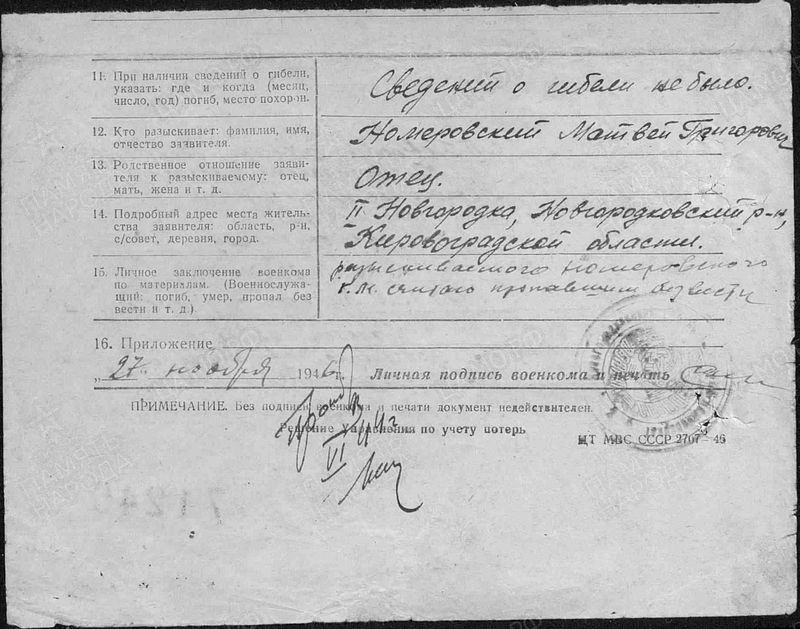 11. При наличии сведений о гибели,
указать: где и когда (месяц,
число, год) погиб, место похор-н.
Сведений о гибели не было.
12. Кто разыскивает: фамилия, имя,
отчество заявителя.
Номеровский Матвей Григорович
13. Родственное отношение заяви-
теля к разыскиваемому: отец,
мать, жена и т. д.
Отец.
14. Подробный адрес места житель-
ства заявителя: область, р-н,
с/совет, деревня, город.
II Новгородка, Новгородковский р-н,
Кировоградской области.
15. Личное заключение военкома
по материалам. (Военнослужа-
щий: погиб, умер, пропал без
вести и т. д.)
разыскиваемого Номеровского
Г. М. считаю пропавшим безвести
16. Приложение
„27" ноября 1946
Личная подпись военкома и печать
ПРИМЕЧАНИЕ. Без подписи военкома и печати документ недействителен.
Решение Управления по учету потерь
VI 44 г.
ЦТ МВС СССР 2707—46